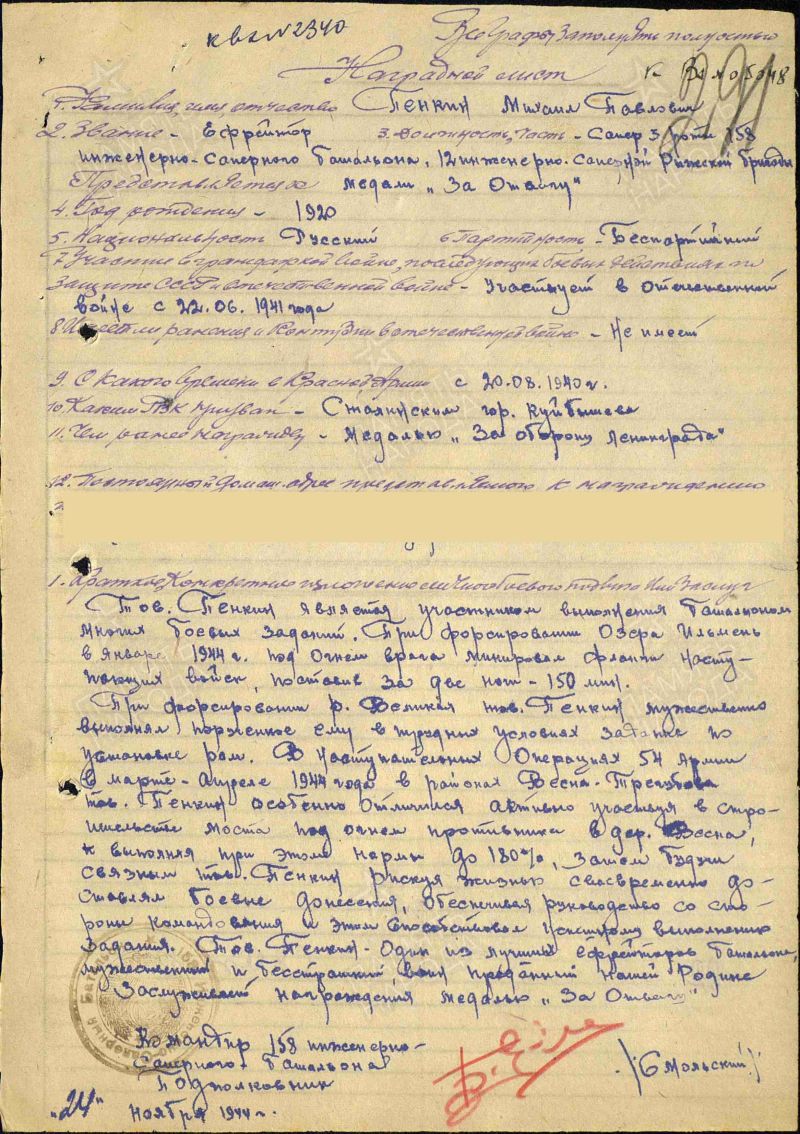 кв. №2340
Все графы заполнять полностью
Наградной лист
1. Фамилия, имя отчество Пенкин Михаил Павлович
2. Звание - Ефрейтор 3. Должность, часть - Сапер 3 роты 158
инженерно-саперного батальона, 12 инженерно-саперной Рижской бригады
Представляется к медали „За Отвагу"
4. Год рождения - 1920
5. Национальность Русский 6 Партийность - Беспартийный
7 Участие в гражданской войне, последующих боевых действиях по
защите СССР и отечественной войне - Участвует в Отечественной
войне с 22.06.1941 года
8 Имеет ли ранения и контузии в отечественной войне - Не имеет
9. С какого времени в Красной Армии с 20.08.1940 г.
10. Каким РВК призван - Сталинским гор. Куйбышева
11. Чем ранее награжден - медалью „За оборону Ленинграда"
12. Постоянный домаш. адрес представляемого к награждению
1. Краткое конкретное изложение личного боевого подвига или заслуг
Тов. Пенкин является участником выполнения батальоном
многих боевых заданий. При форсировании Озера Ильмень
в январе 1944 г. под огнем врага минировал фланги насту-
пающих войск, поставив за две ночи - 150 мин.
При форсировании р. Великая тов. Пенкин мужественно
выполнял порученное ему в трудных условиях задание по
установке рам. В наступательных операциях 54 Армии
в марте-апреле 1944 года в районах Весна-
тов. Пенкин особенно отличился активно участвуя в стро-
ительстве моста под огнем противника в дер. Весна,
выполняя при этом нормы до 180%, затем будучи
связным тов. Пенкин рискуя жизнью своевременно до-
ставлял боевые донесения, обеспечивая руководство со сто-
роны командования и этим способствовал успешному выполнению
задания. Тов. Пенкин - один из лучших ефрейторов батальона,
мужественный и бесстрашный воин преданный нашей Родине
Заслуживает награждения медалью „За Отвагу"
Командир 158 инженерно-
саперного батальона
Подполковник
/Смольский/
"24" ноября 1944 г.